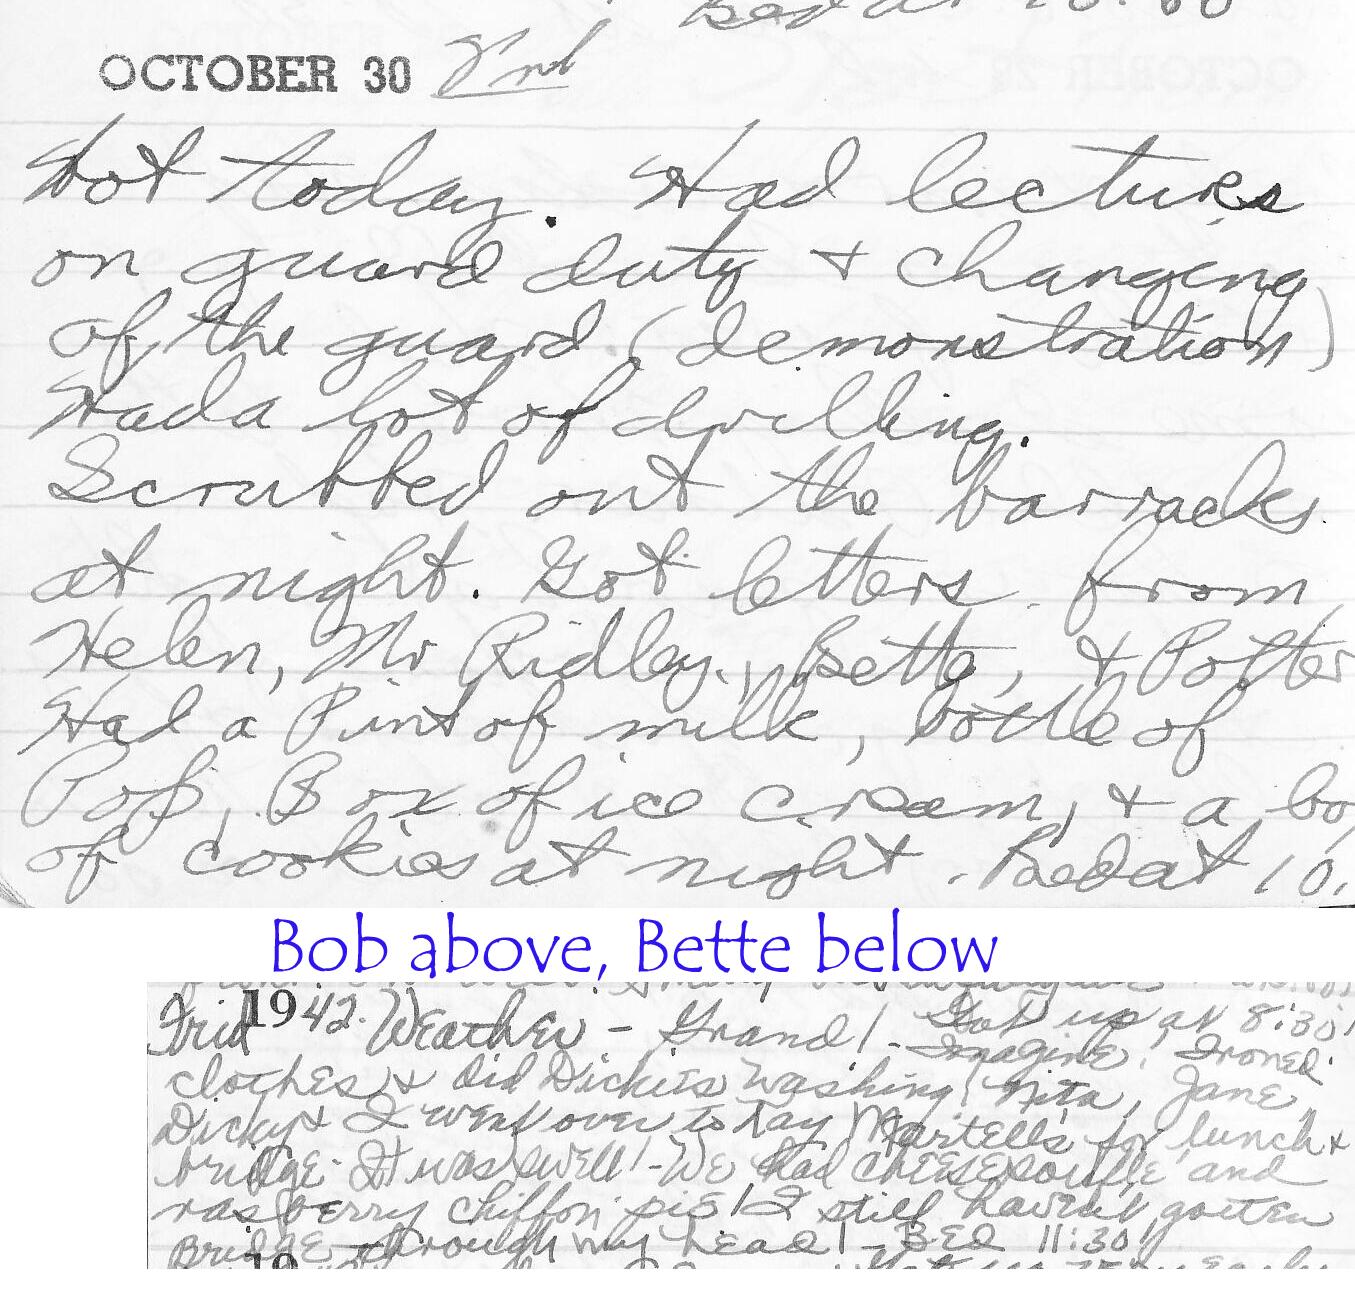 Bed at 10:00
OCTOBER 30 2nd
Hot today. Had lectures
on guard duty + changing
of the guard (demonstration)
Had a lot of drilling.
Scrubbed out the barracks
at night. Got letters from
Helen, Mr Ridley, Bette, + Potter
Had a Pint of milk, bottle of
Pop, Box of ice cream, + a bo
of cookies at night. Bed at 10.
Bob above, Bette below
Frid 1942. Weather - Grand! - Got up at 8:30!
Imagine! Ironed
clothes & did Dickie's washing! Nita, Jane,
Dicky & I went over to Kay Martell's for lunch &
bridge. It was swell! - We had cheese souffle and
rasberry chiffon pie! I still haven't gotten
Bridge through my head! - Bed 11:30!
19